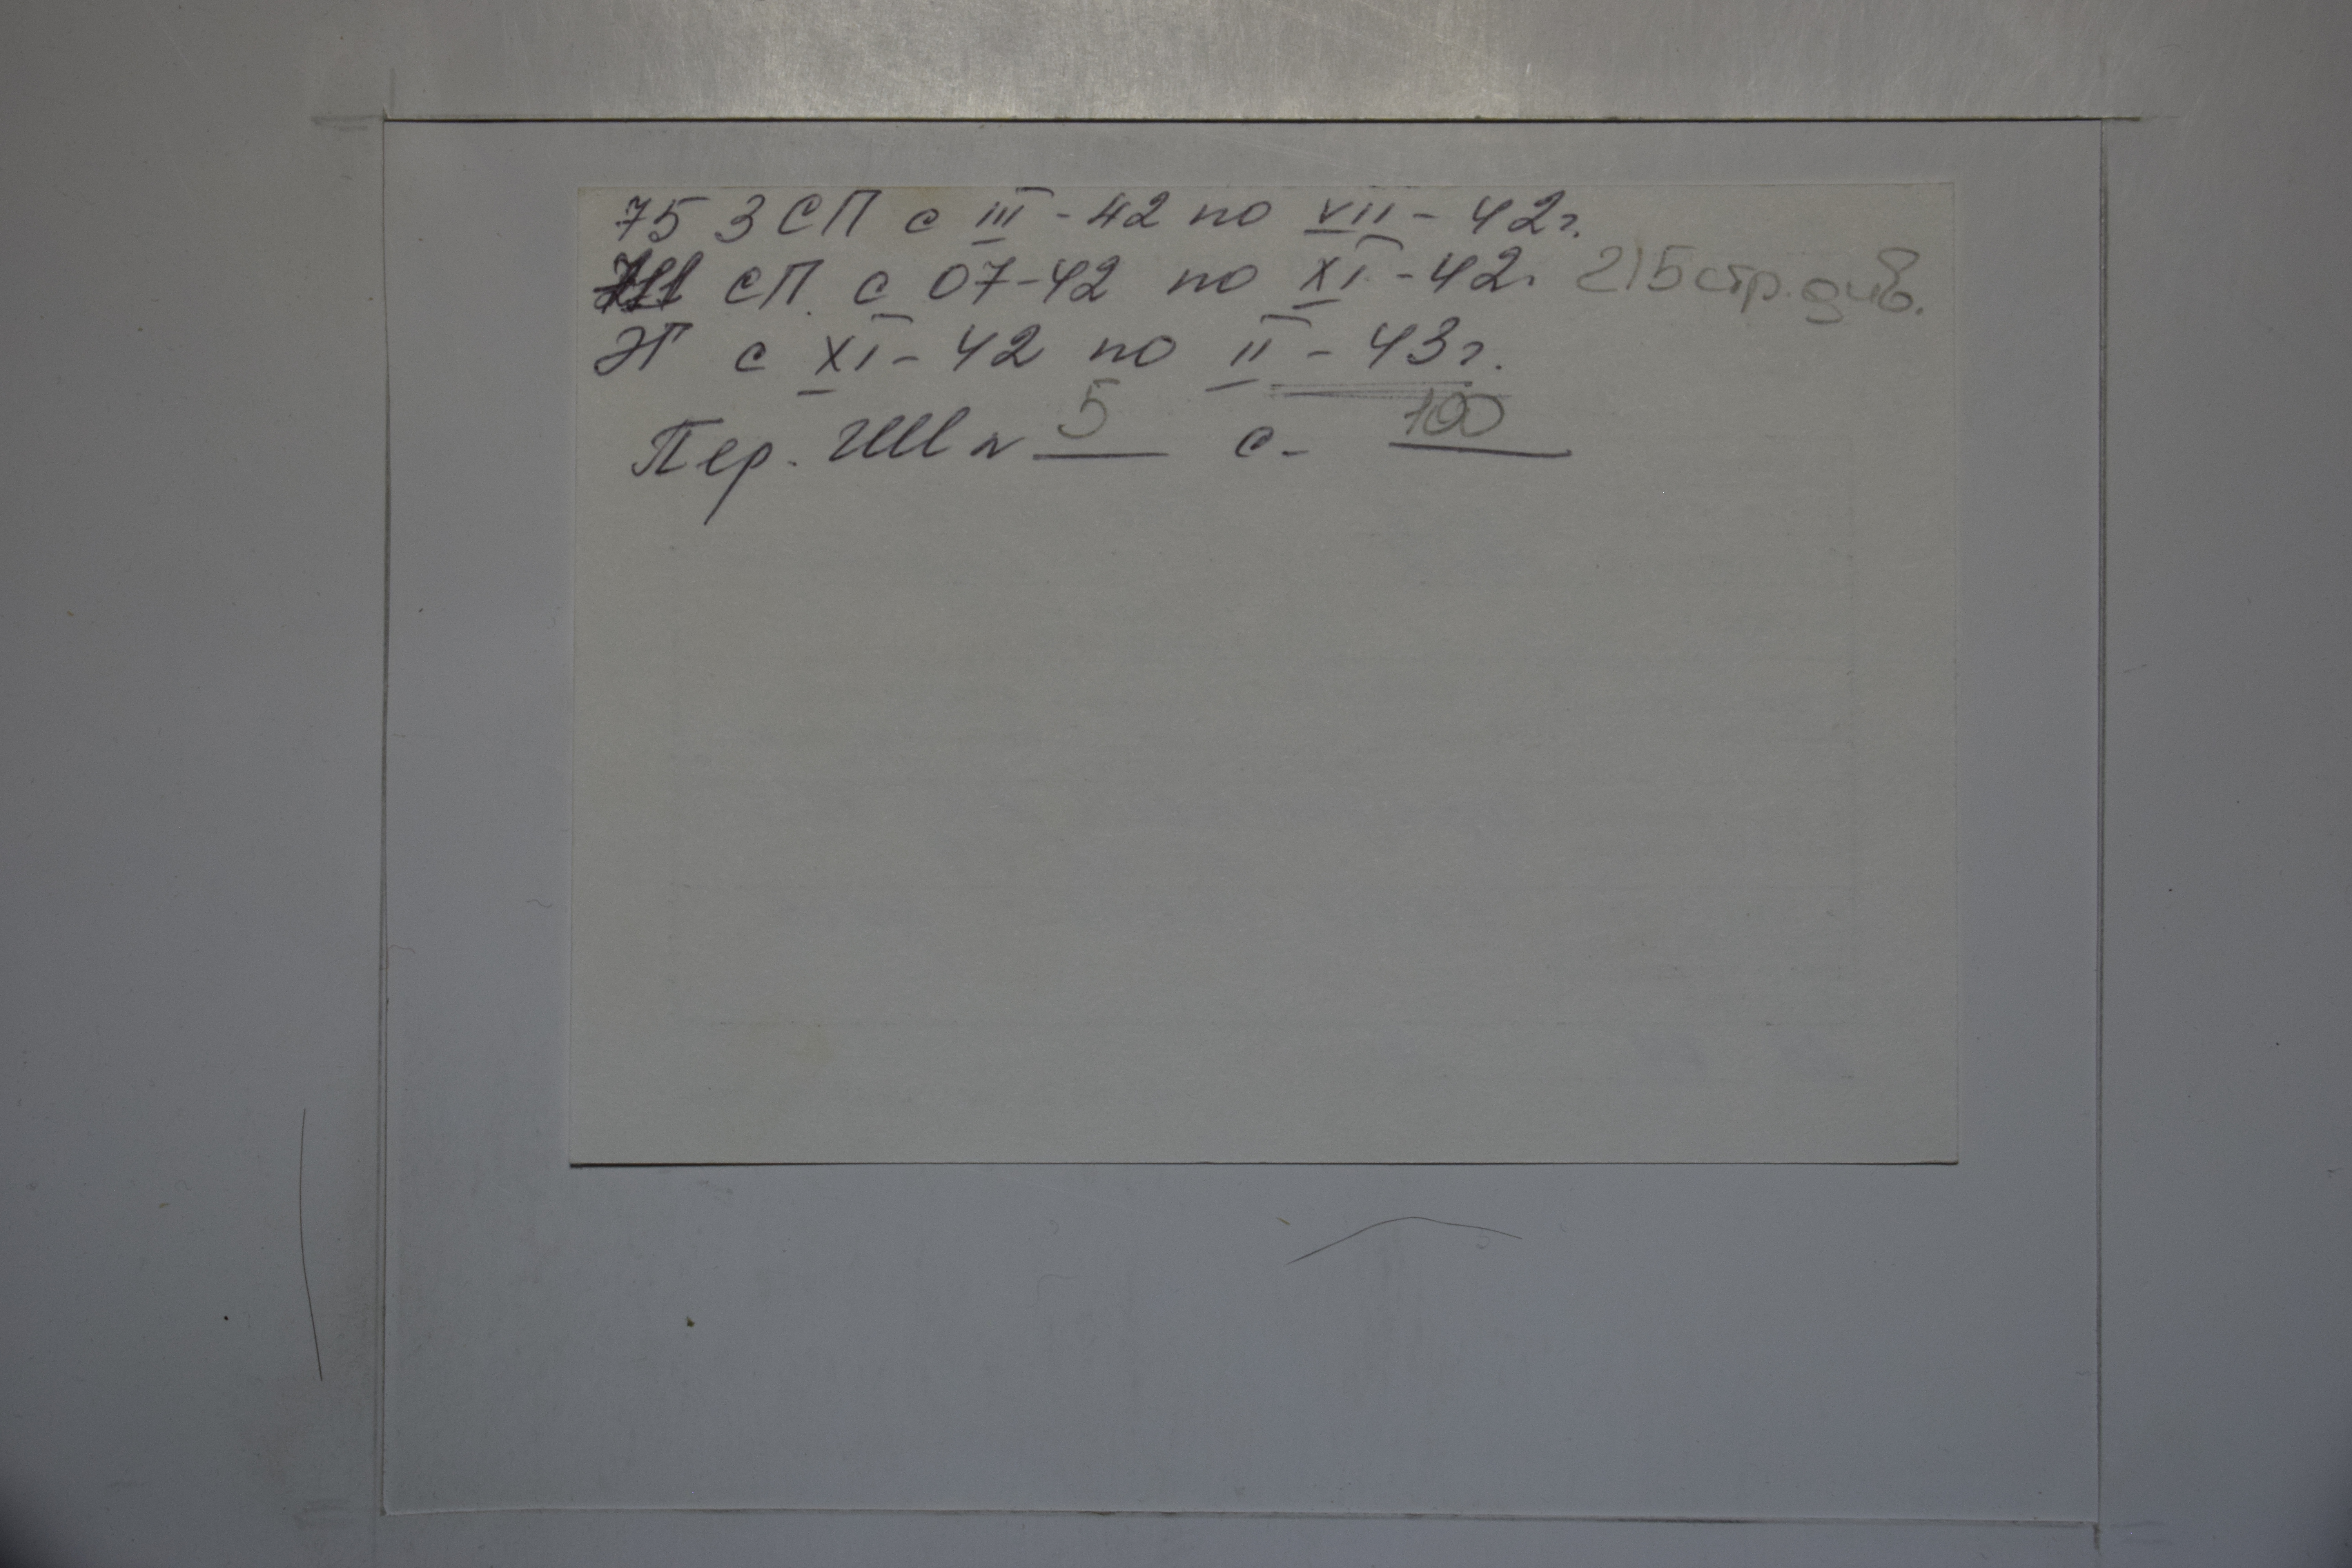 75 ЗСП с III - 42 по VII - 42г.
711 СП. с 07-42 по XI - 42г 215 стр. див.
ЭГ с XI - 42 по II - 43г.
Пер. ШИ № 5 с - 100